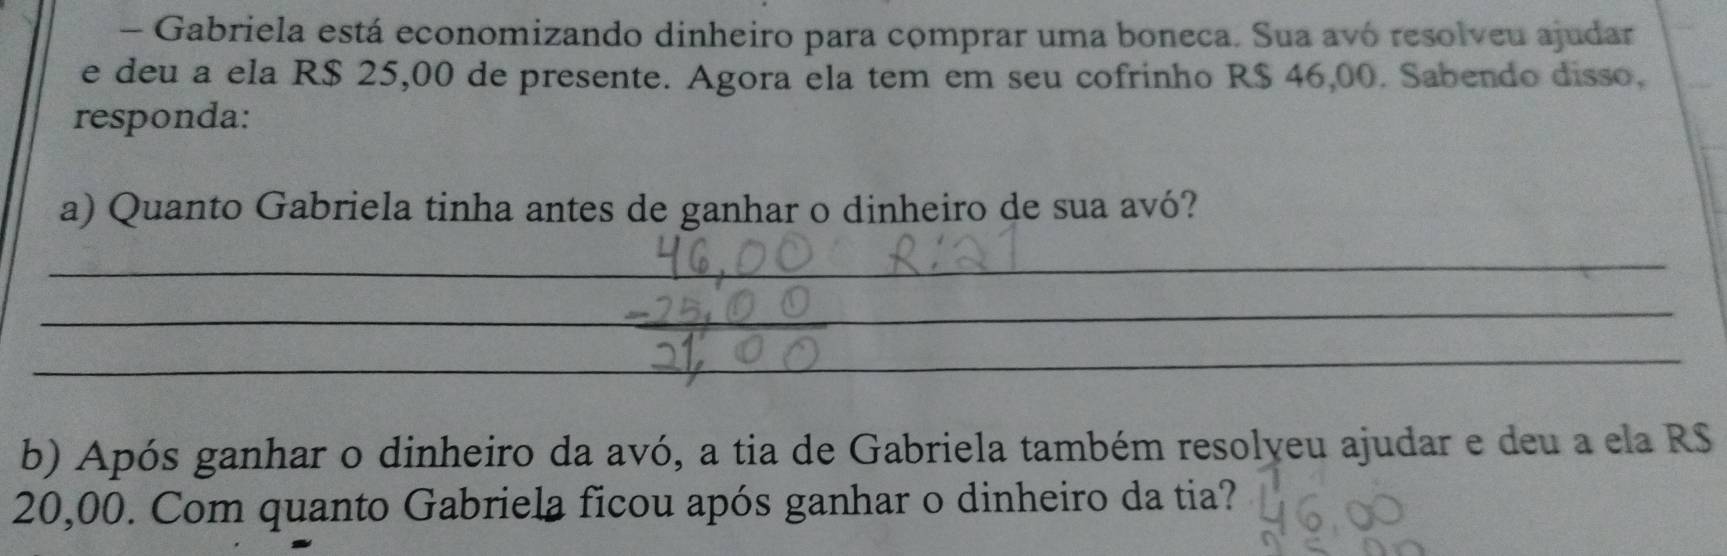 – Gabriela está economizando dinheiro para comprar uma boneca. Sua avó resolveu ajudar
e deu a ela R$ 25,00 de presente. Agora ela tem em seu cofrinho R$ 46,00. Sabendo disso,
responda:
a) Quanto Gabriela tinha antes de ganhar o dinheiro de sua avó?
46,00 R:21
-25,00
21,00
b) Após ganhar o dinheiro da avó, a tia de Gabriela também resolveu ajudar e deu a ela R$
20,00. Com quanto Gabriela ficou após ganhar o dinheiro da tia?
46,00